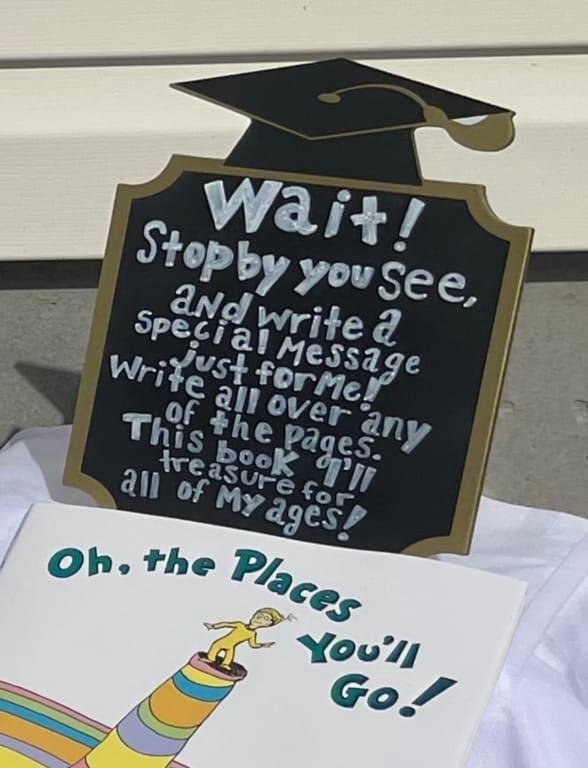 Wait!
Stop by you see,
and write a
special message
just for me!
Write all over any
of the pages.
This book I'll
treasure for
all of My ages!
Oh, the Places
You'll
Go!